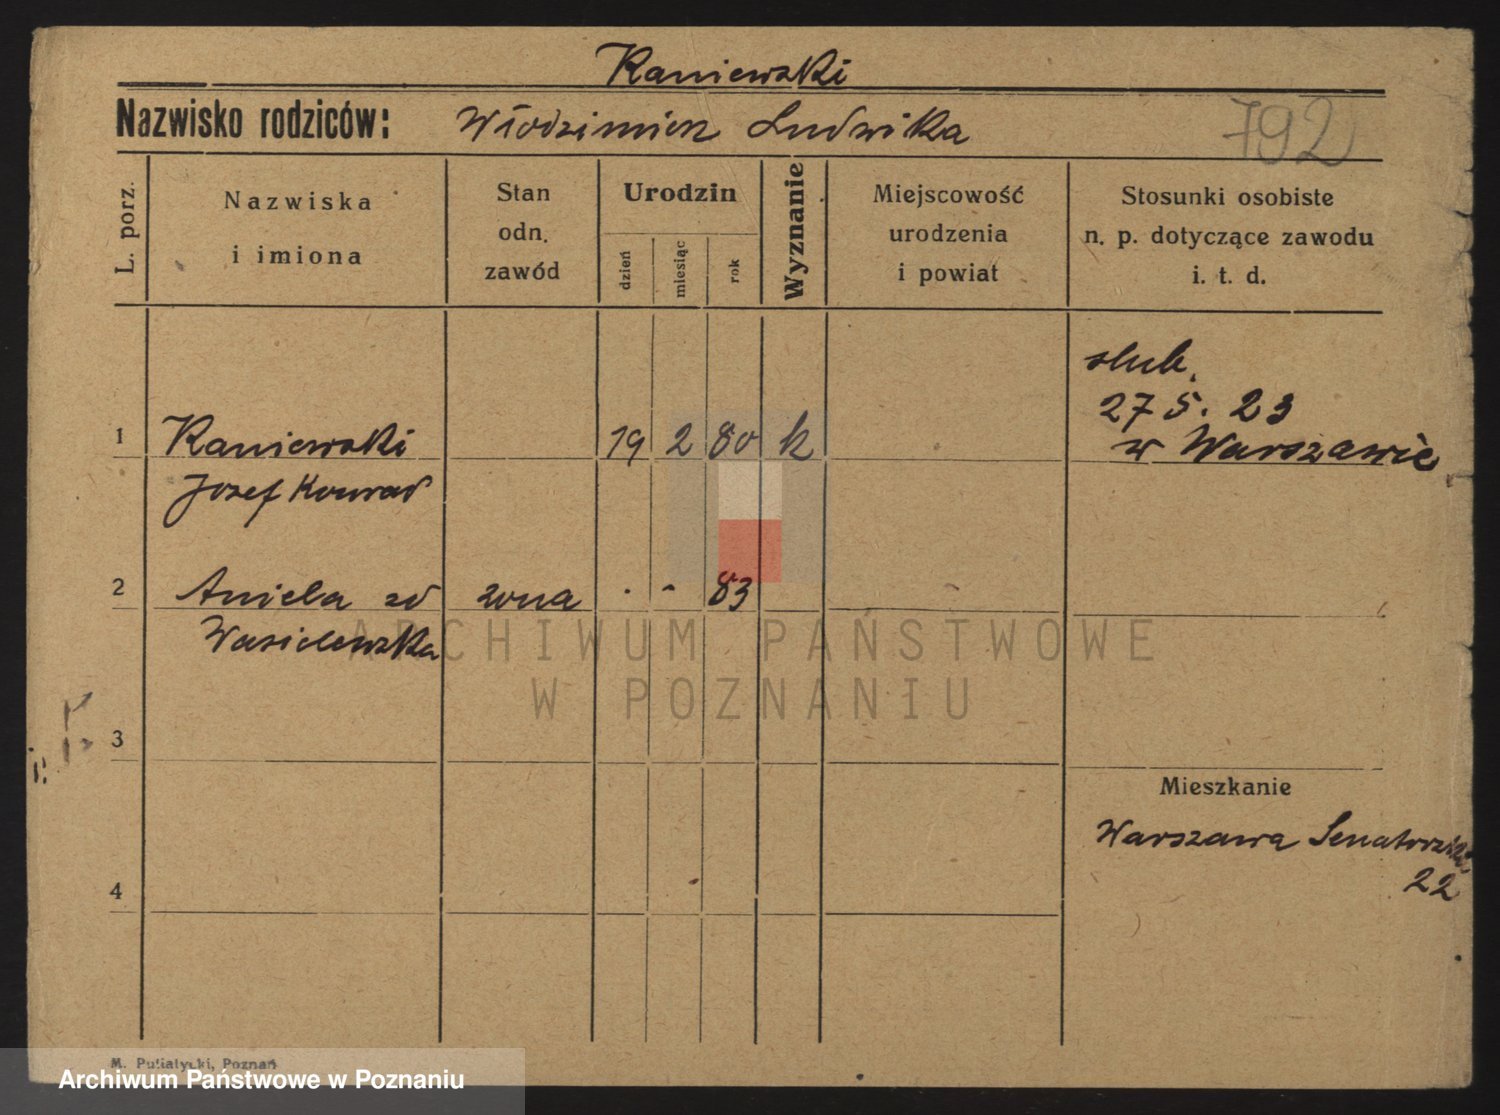 Kaniewski
Nazwisko rodziców: Włodzimierz Ludwika
792
L. porz.
Nazwiska
i imiona
Stan
odn.
zawód
Urodzin
dzień
miesiąc
rok
Wyznanie
Miejscowość
urodzenia
i powiat
Stosunki osobiste
n. p. dotyczące zawodu
i. t. d.
slub.
27 5. 23
w Warszawie
1 Kaniewski 19 2 80 k
Jozef Konrad
2 Aniela zd zona . - 83
Wasilewska
ARCHIWUM PAŃSTWOWE
W POZNANIU
3
Mieszkanie
Warszawa Senatorska
22
4
M. Putiatycki, Poznań
Archiwum Państwowe w Poznaniu